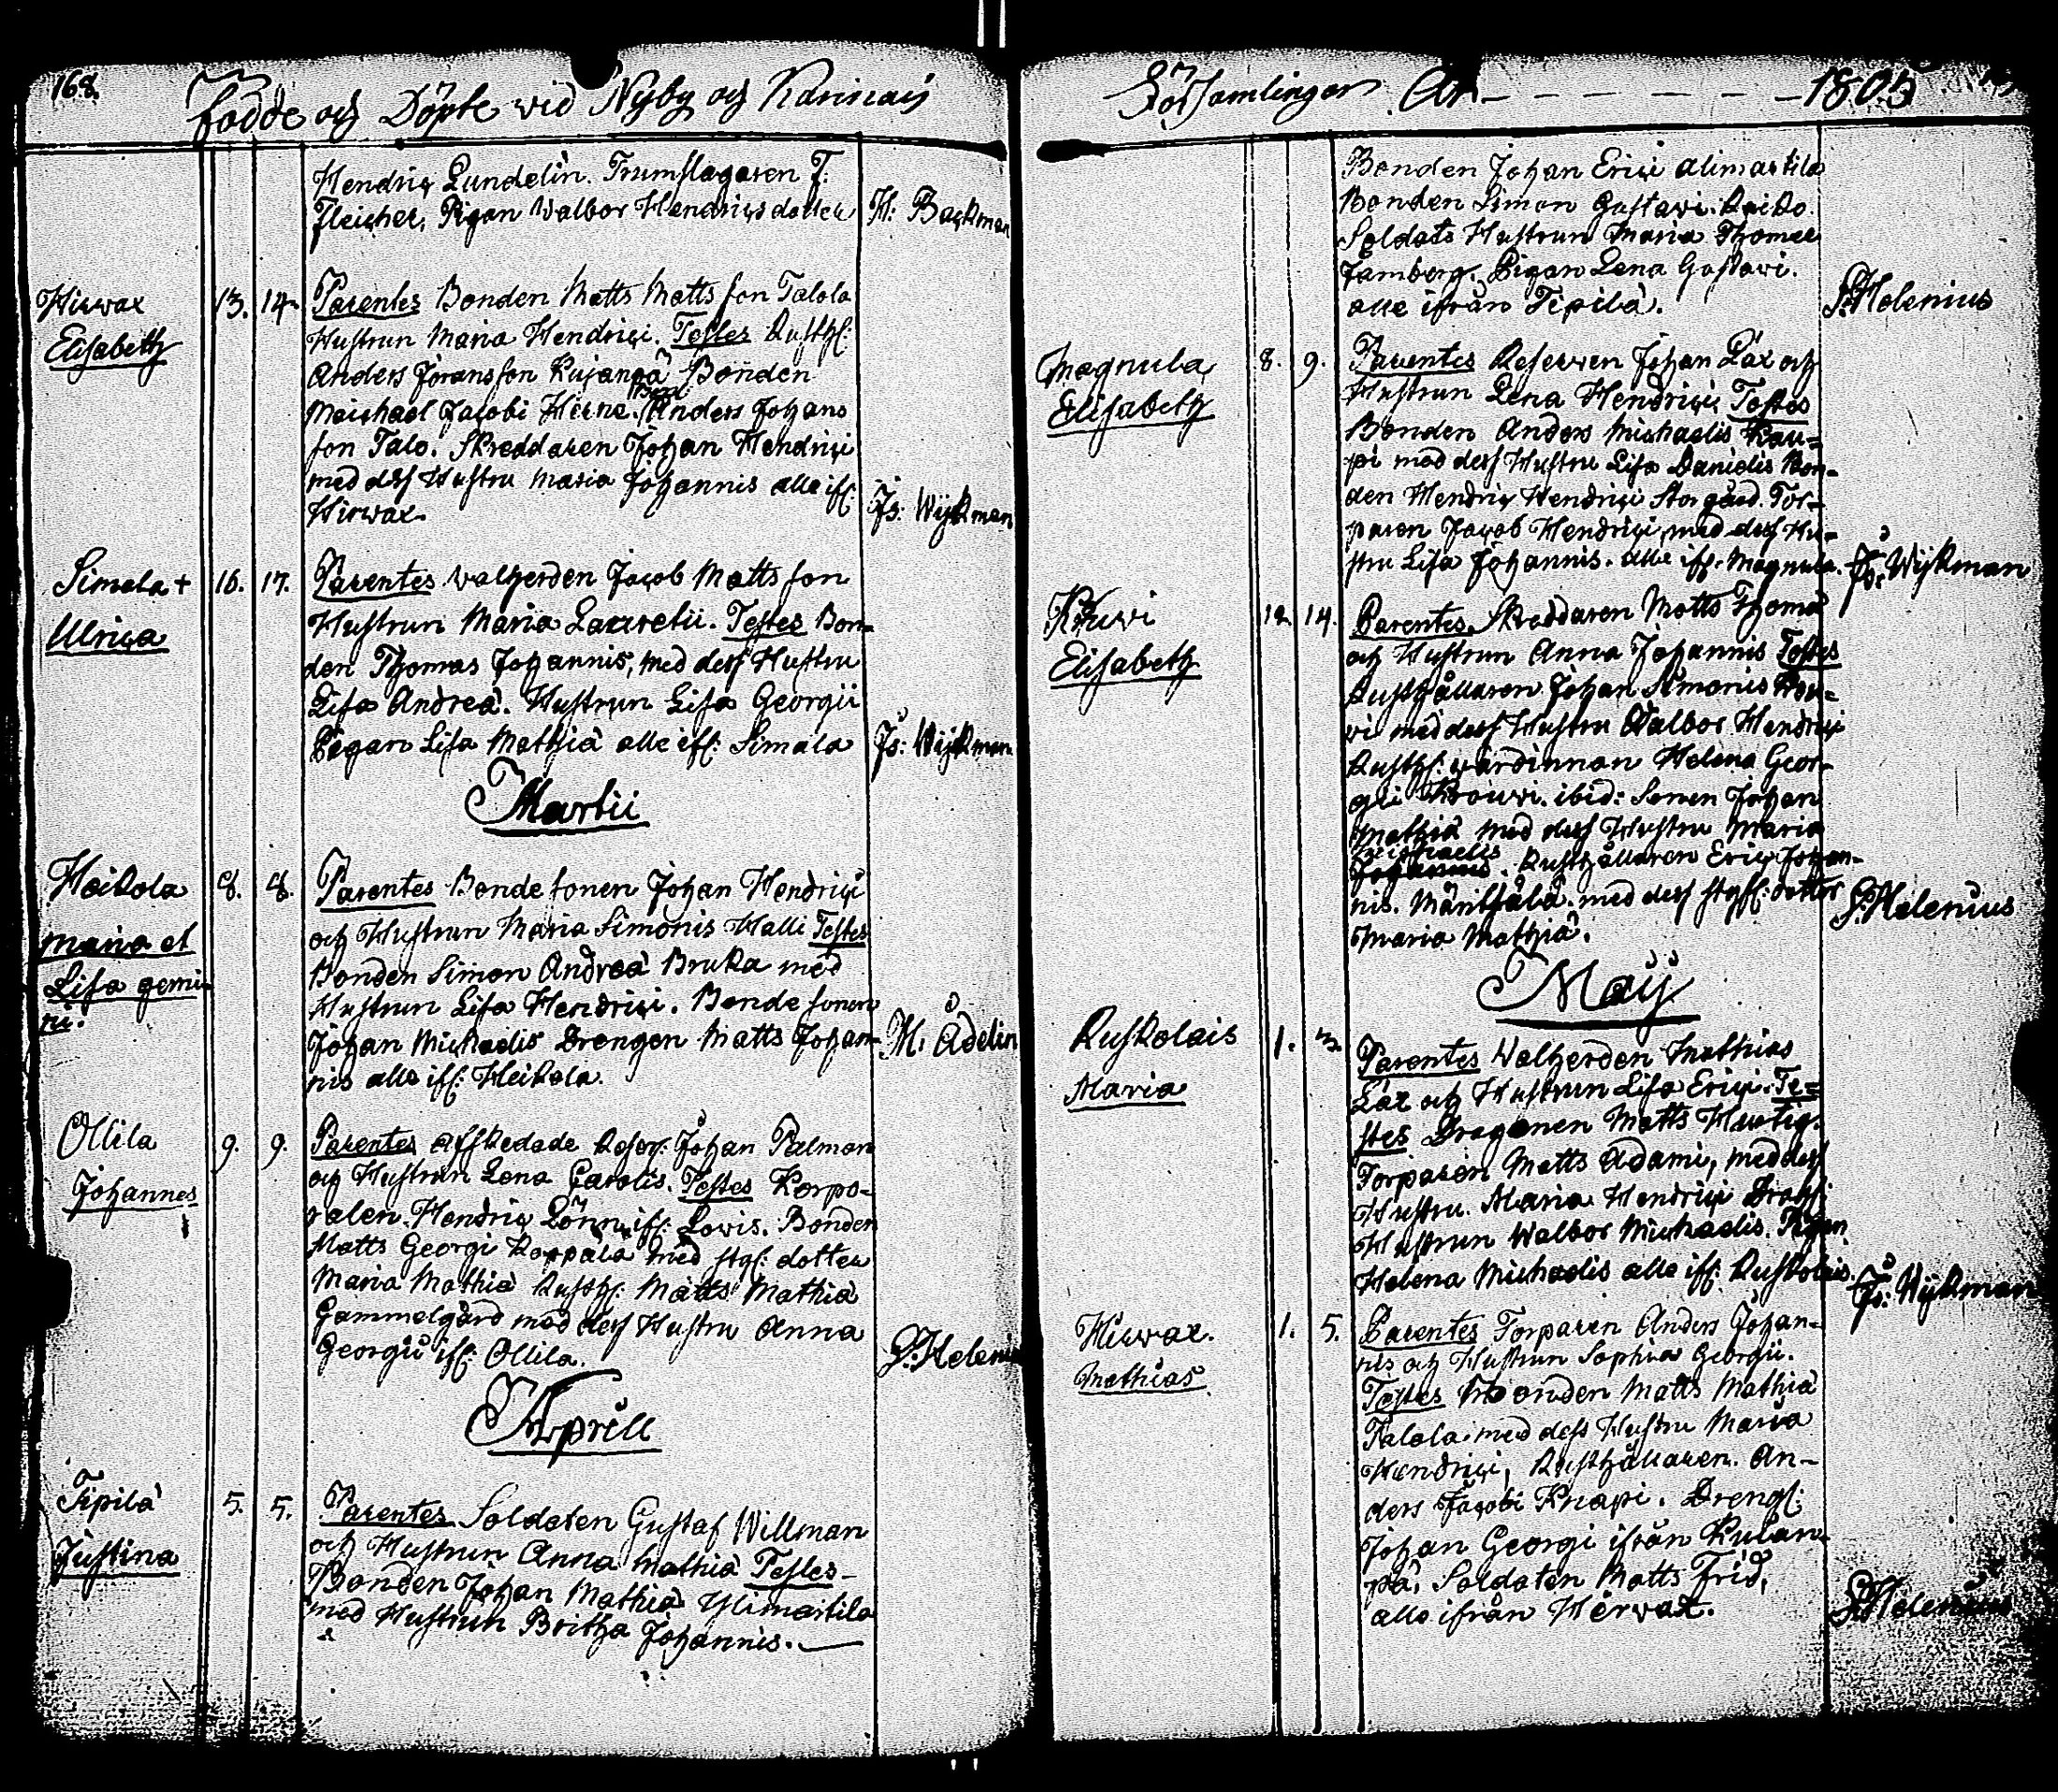 168.
Födde och Döpte vid Nyby och Karinais
Hendric Lundelin. Trumslagaren J.
Fleicher, Pigan Walbor Hendricsdotter
H: Backman
Hirwax 13. 14. Parentes Bonden Matts Mattsson Talola
Elisabeth
Hustrun Maria Hendrici. Testes Rusth:
Anders Joransson Kujanpä Bonden
Meichael Jacobi Hirne. Bond Anders Johans
son Talo. Skreddaren Johan Hendrici
med dess Hustru Maria Johannis alla if:
Hirwax.
Js: Wijkman
Simala + 16. 17. Parentes Walherden Jacob Mattsson
Ulrica
Hustrun Maria Lauretii. Testes Bon-
den Thomas Johannis, med dess Hustru
Lisa Andreä. Hustrun Lisa Georgii
Pigan Lisa Mathiä alle if: Simala
Js: Wijkman
Martii
Heikola 8. 8. Parentes Bonde sonen Johan Hendrici
Maria et
Lisa gemi-
ni.
och Hustrun Maria Simonis Halli Testes
Bonden Simon Andreä Bruka med
Hustrun Lisa Hendrici. Bonde sonen
Johan Michaelis Drengen Matts Johan-
nis alla if: Heikola.
M. Ådelin
Ollila 9. 9. Parentes Afskedade Reser: Johan Palman
Johannes
och Hustrun Lena Carolis. Testes Korpo-
ralen Hendric Lönn if: Lowis. Bonden
Matts Georgi Kåppälä med stgf: dotter
Maria Mathiä Rusth: Matts Mathiä
Gammelgård med dess Hustru Anna
Georgii if: Ollila.
S: Helenius
Aprill
Tipilä 5. 5. Parentes Soldaten Gustaf Willman
Justina
och Hustrun Anna Mathiä Testes
Bonden Johan Mathiä Ylimartila
med Hustrun Britha Johannis.
Församlingar År 1805
Bonden Johan Erici Alimartila
Bonden Simon Gustavi Raiko.
Soldats Hustrun Maria Thomee
Jamberg. Pigan Lena Gostavi.
alle ifrån Tipilä.
S: Helenius
Magnula 8. 9. Parentes Reserven Johan Läx och
Elisabeth
Hustrun Lena Hendrici Testes
Bonden Anders Michaelis Kau-
pi med dess Hustru Lisa Danielis Bon-
den Hendric Hendrici Storgård. Tor-
paren Jacob Hendrici, med dess Hu-
stru Lisa Johannis. alla if: Magnula.
Js: Wijkman
12. 14. Parentes Skreddaren Matts Thomä
Elisabeth
och Hustrun Anna Johannis Testes
Rusthållaren Johan Simonis
med dess Hustru Walbor Hendrici
Rusth: wärdinnan Helena Geor-
gii ibid: Sonen Johan
Mathiä med dess Hustru Maria
Michaelis
Johannis. Rusthållaren Eric Johan-
nis. med dess stgf: dotter
Maria Mathiä.
S: Helenius
Maij
Ruskolais 1. 3. Parentes Walherden Mathias
Maria
Läx och Hustrun Lisa Erici. Te-
stes Dragonen Matts Hurtig.
Torparen Matts Adami, med dess
Hustru Maria Hendrici Drag:
Hustrun Walbor Michaelis. Pigan
Helena Michaelis alle if: Ruskolais.
Js: Wijkman
Hirwax. 1. 5. Parentes Torparen Anders Johan-
Mathias
nis och Hustrun Sophia Georgii.
Testes Bonden Matts Mathiä
Talola med dess Hustru Maria
Hendrici, Rusthållaren An-
ders Jacobi Knapi. Dreng:
Johan Georgi ifrån Kulan-
pä. Soldaten Matts Frid,
alla ifrån Hirwax.
S: Helenius